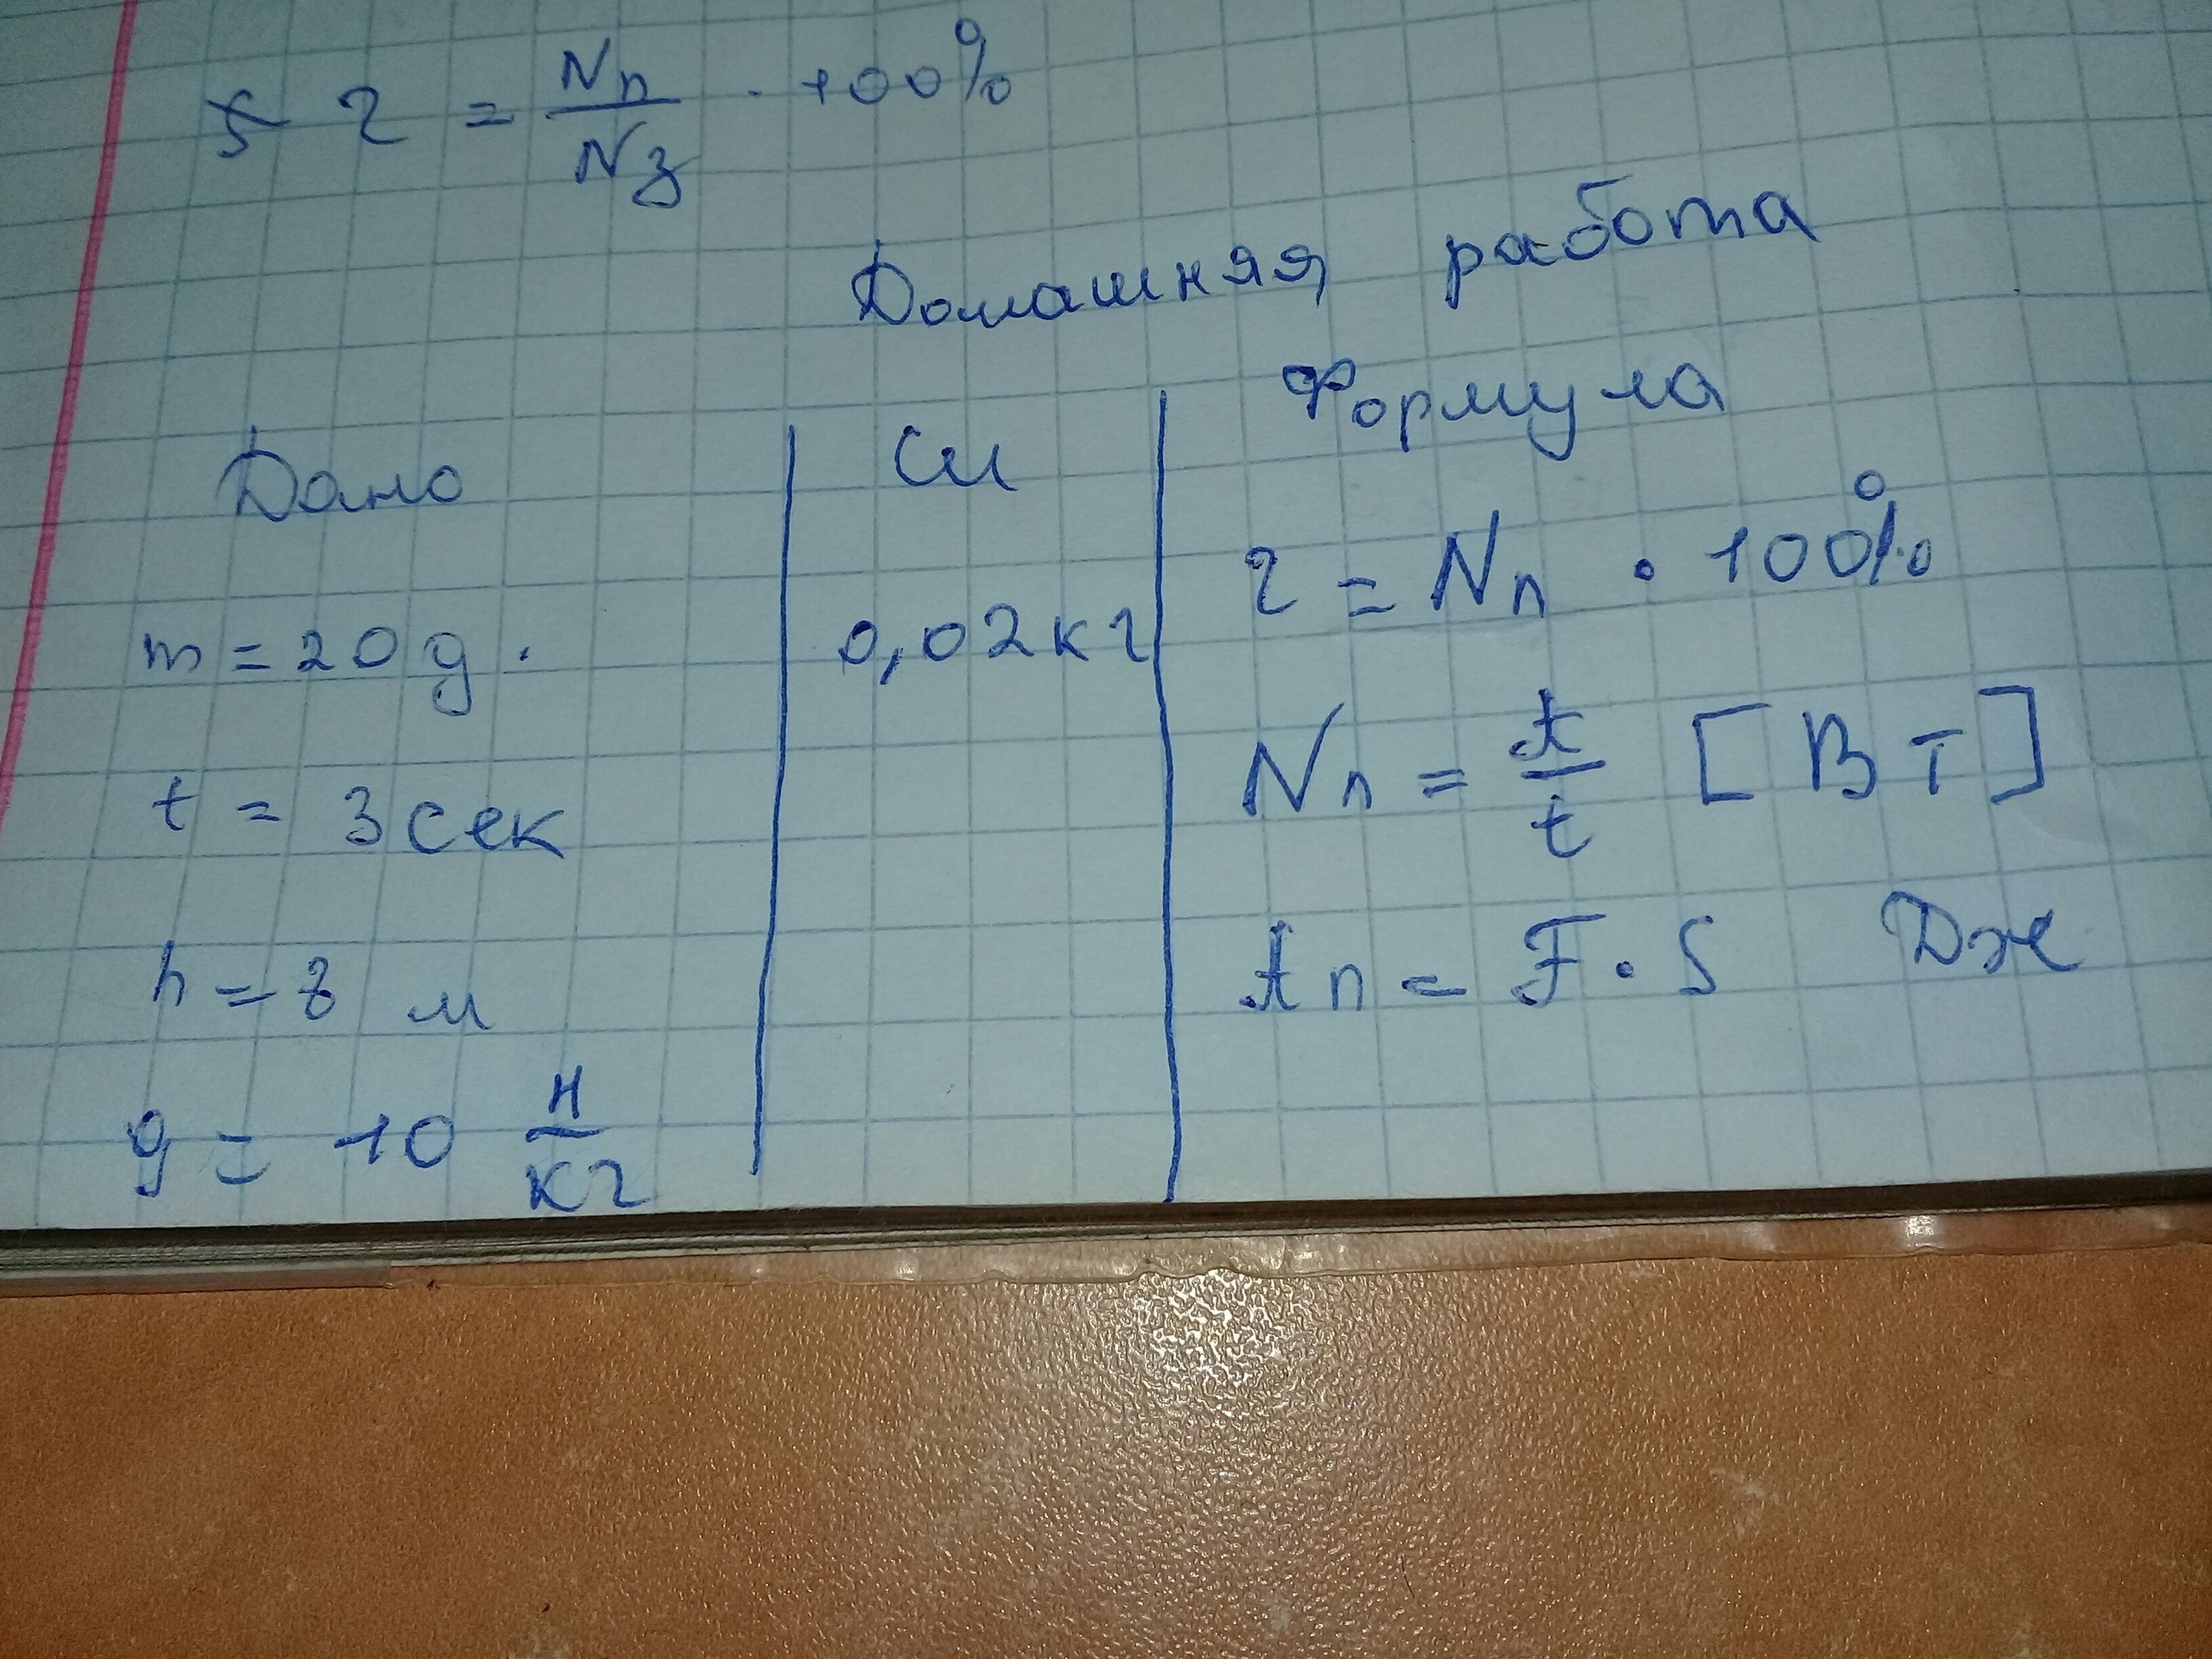 η = Nп/Nз · 100%
Домашняя работа
Дано
m = 20 g.
t = 3 сек
h = 8 м
g = 10 н/кг
Си
0,02 кг
Формула
η = Nп · 100%
Nп = A/t [Вт]
Aп = F · S Дж